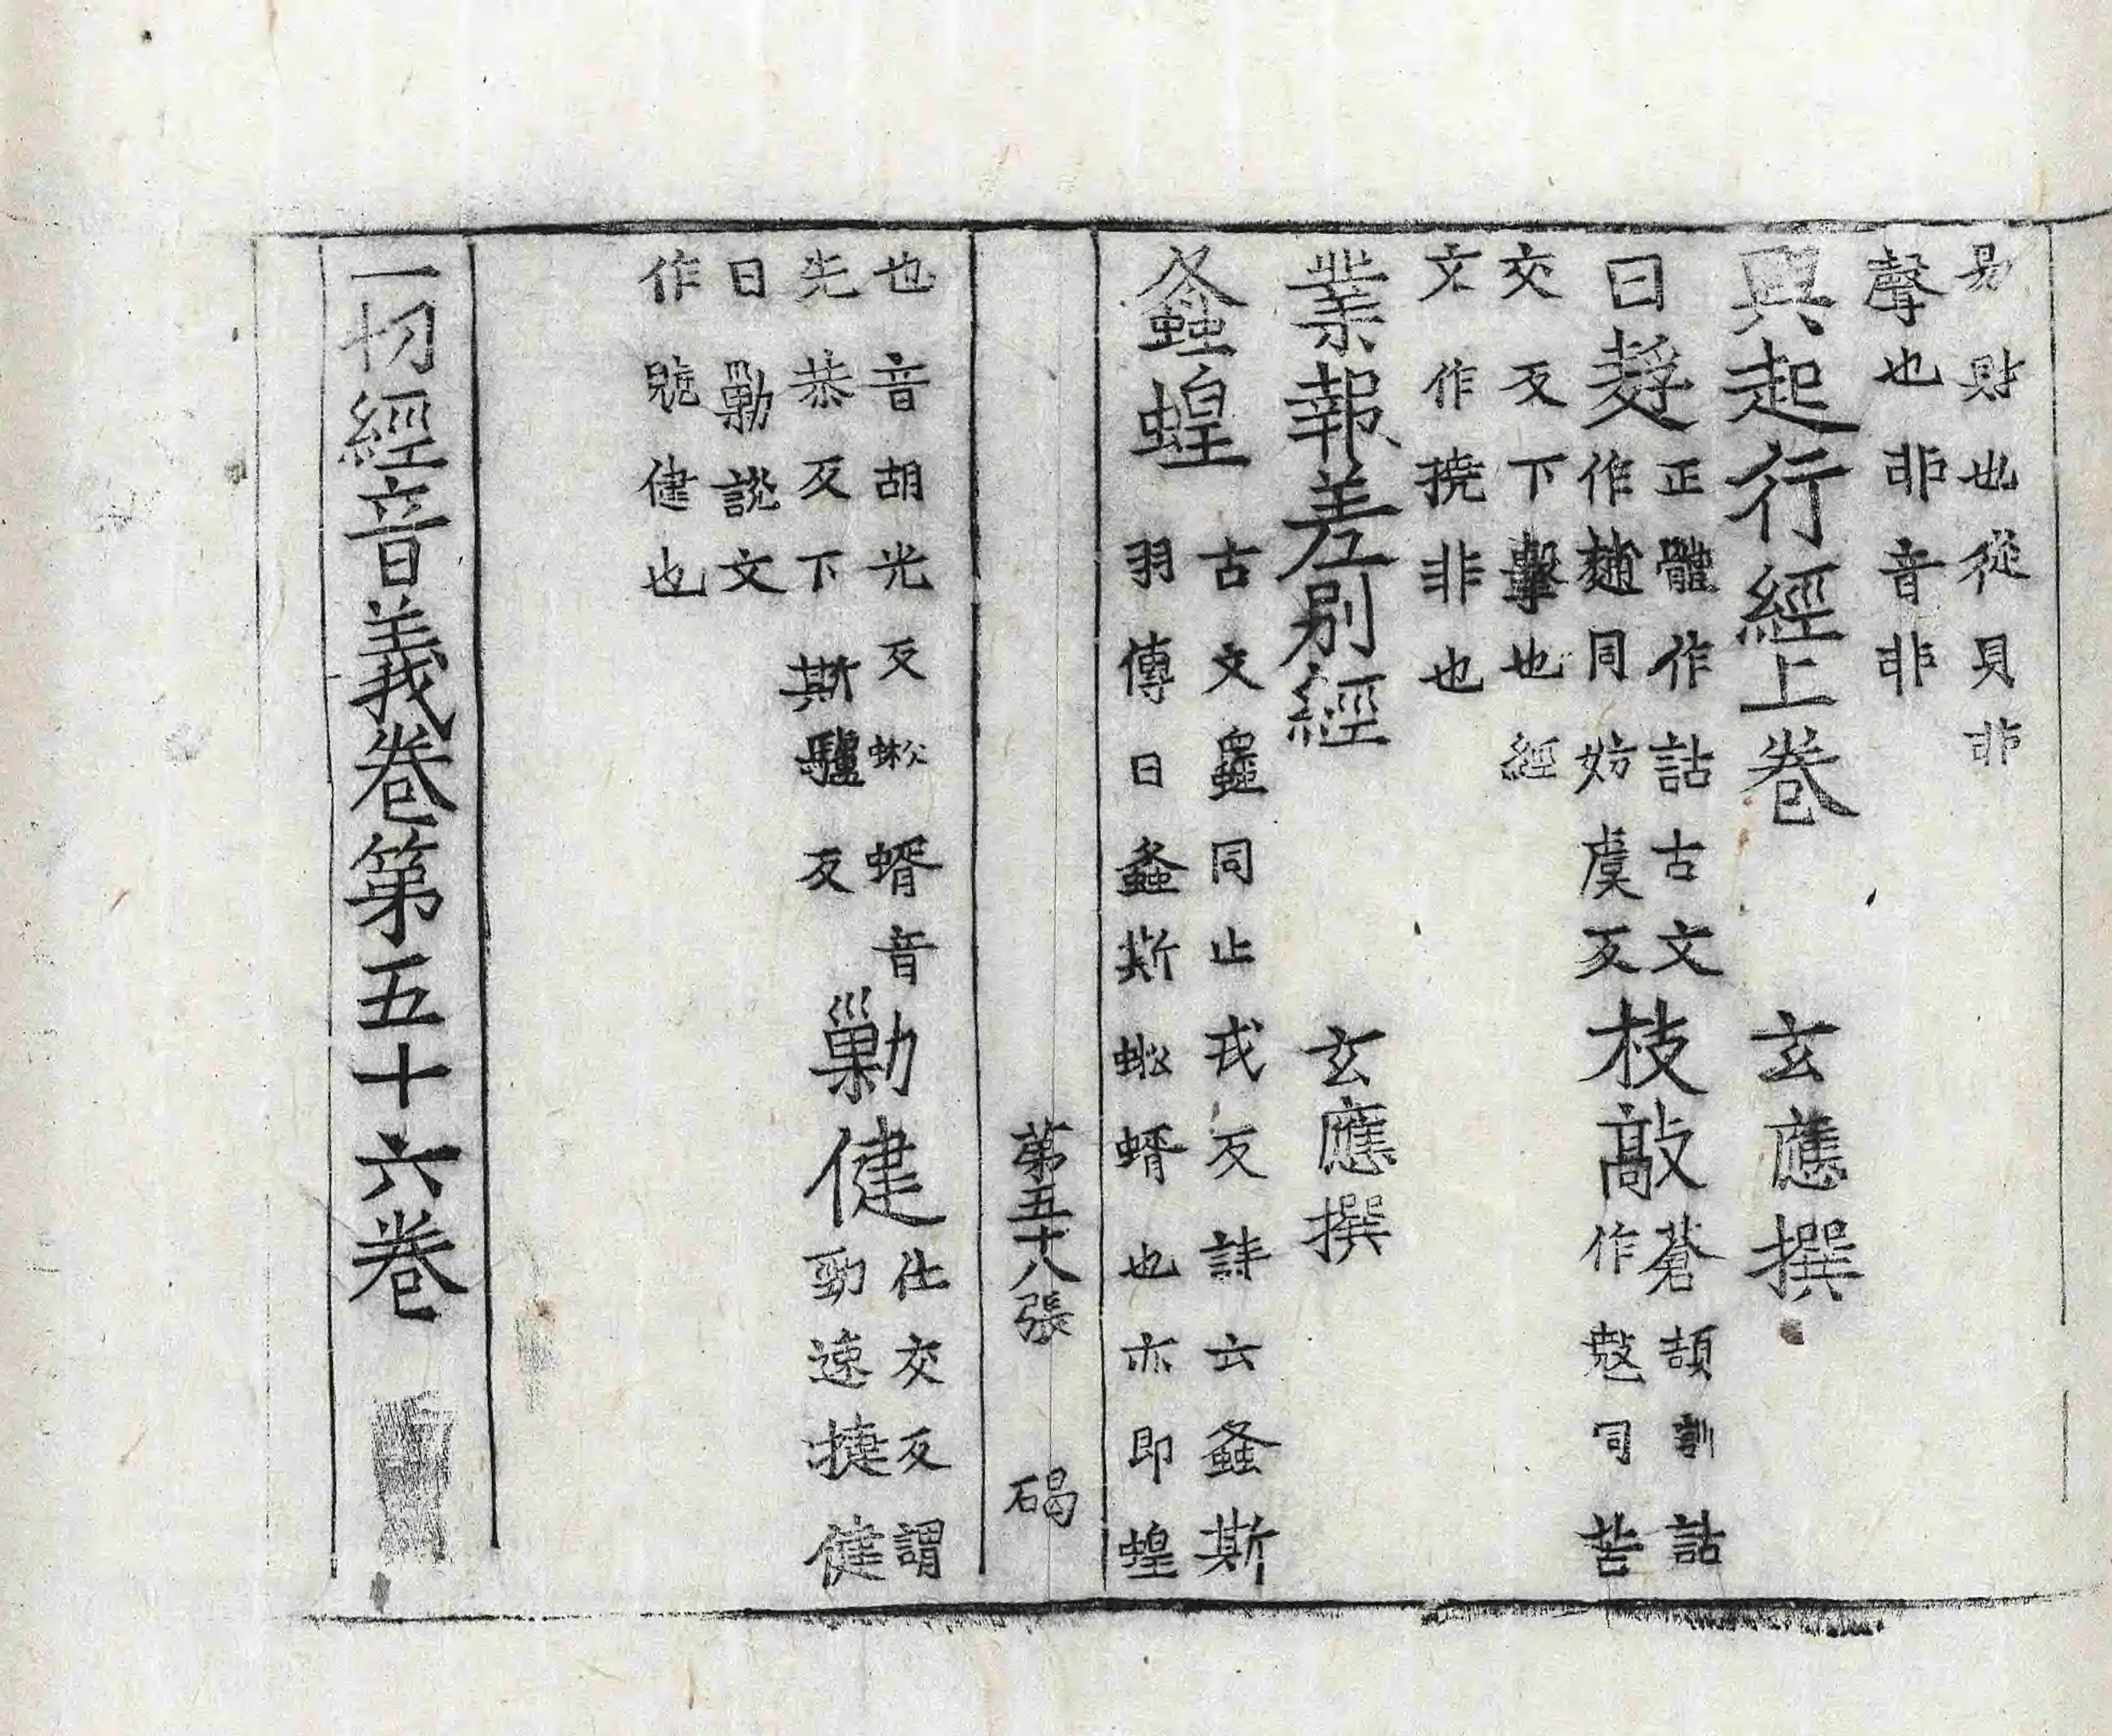 易財也從貝非
聲也非音非
興起行經上卷 玄應撰
曰𪍿正體作詁古文
作麱同妨虞反枝敲蒼頡訓詁
作㪣同苦
交反下擊也經
文作撓非也
業報差別經 玄應撰
螽蝗古文𧑄同止戎反詩云螽斯
羽傳曰螽斯蚣蝑也亦即蝗
第五十八張 碣
也音胡光反蚣蝑音
先恭反下斯驢反勦健仕交反謂
勁速捷健
曰勦說文
作䟫健也
一切經音義卷第五十六卷